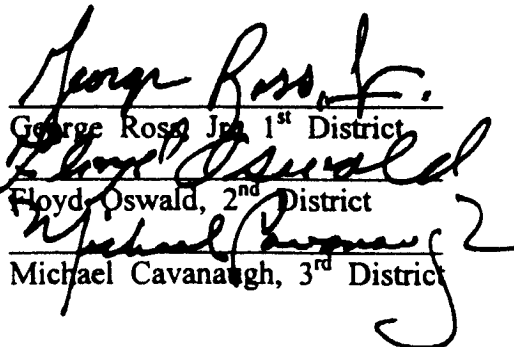 George Ross, Jr.
George Ross, Jr., 1st District
Floyd Oswald
Floyd Oswald, 2nd District
Michael Cavanaugh
Michael Cavanaugh, 3rd District